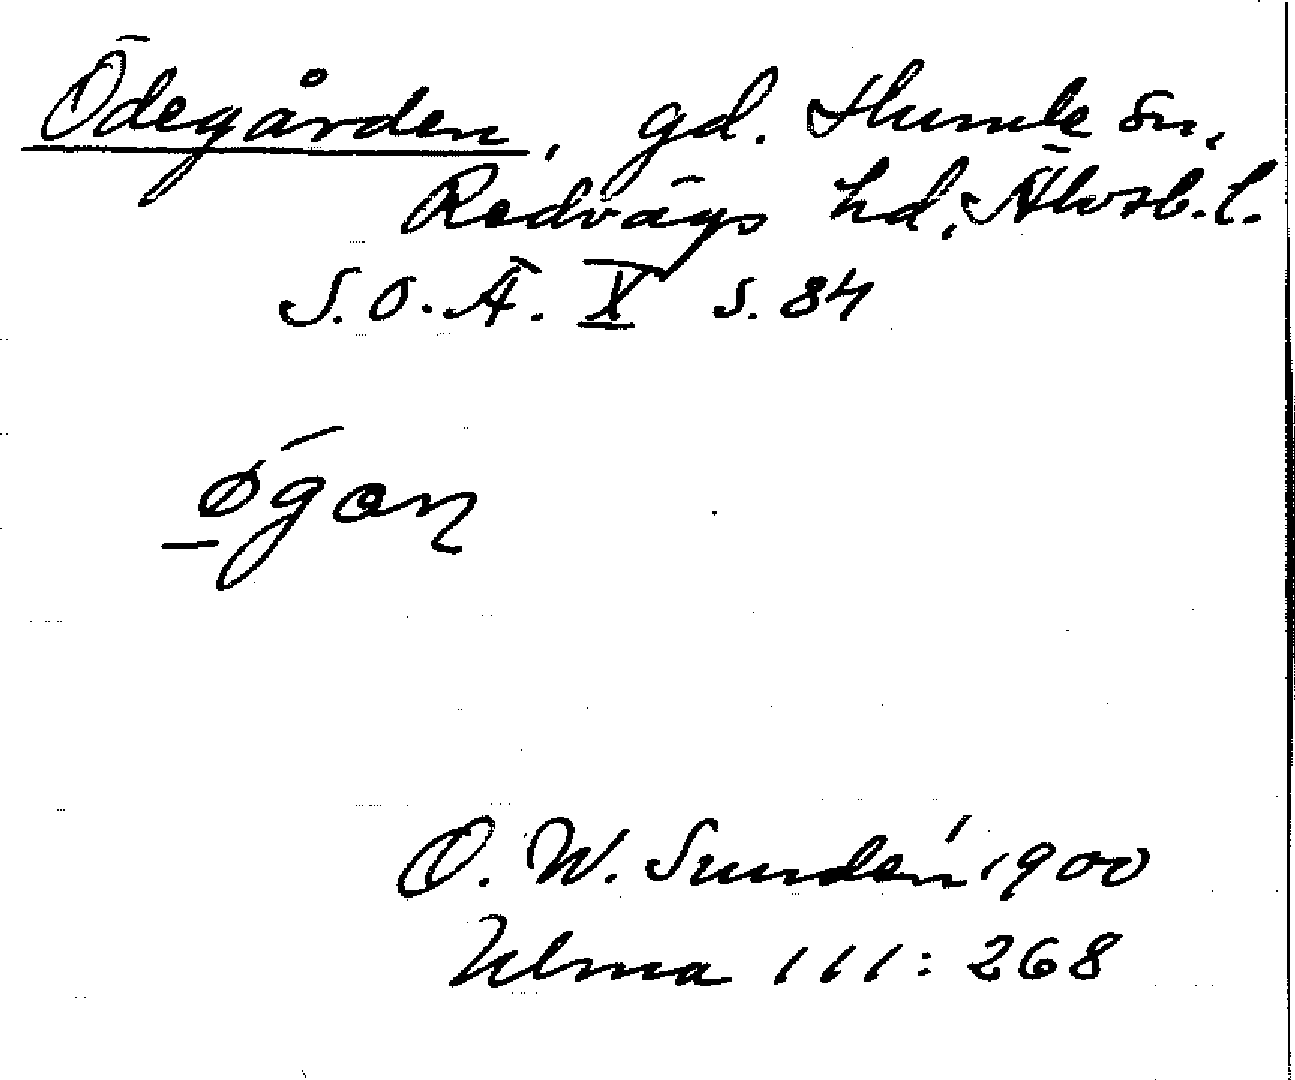 Ödegården, gd. Humla sn,
Redvägs hd, Älvsb. l.
S. O. Ä. X s. 84
O. W. Sundén 1900
Ulma 111: 268